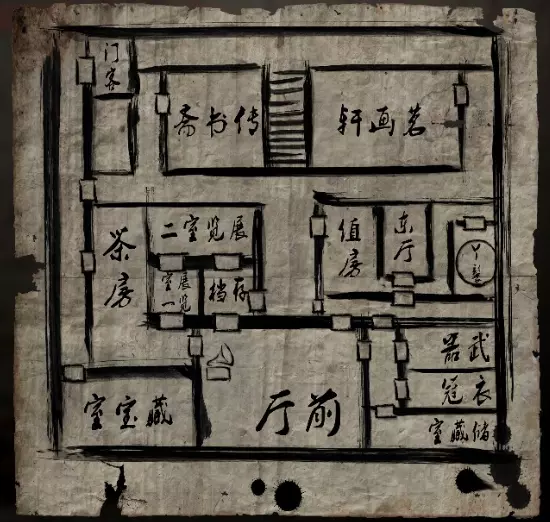 门客
传书斋
茗画轩
茶房
展览室二
值房
东厅
展览室一
存档
武器
衣冠
储藏室
藏宝室
前厅